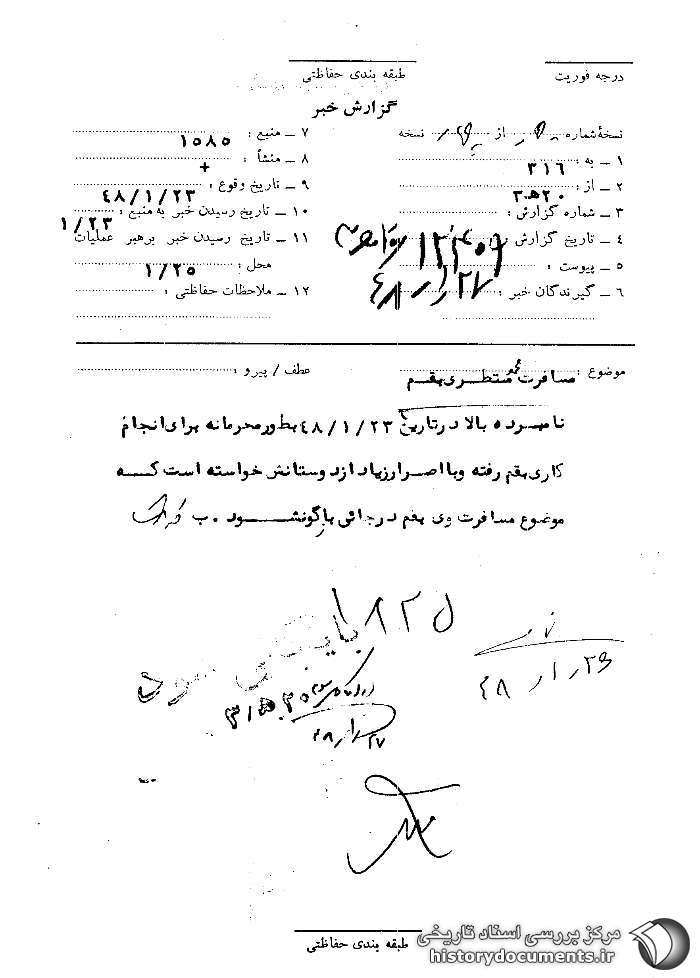 درجه فوریت
طبقه بندی حفاظتی
گزارش خبر
نسخهٔ شماره از نسخه
۱ ـ به : ۳۱۶
۲ ـ از : ۲۰ ه‍ ۳
۳ ـ شماره گزارش :
۴ ـ تاریخ گزارش
۵ ـ پیوست :
۶ ـ گیرندگان خبر :
۴۸/۱/۲۷
۷ ـ منبع : ۱۵۸۵
۸ ـ منشأ : +
۹ ـ تاریخ وقوع : ۴۸/۱/۲۳
۱۰ ـ تاریخ رسیدن خبر به منبع : ۱/۲۳
۱۱ ـ تاریخ رسیدن خبر برهبر عملیات
محل : ۱/۲۵
۱۲ ـ ملاحظات حفاظتی :
موضوع : مسافرت محمد منتظری بقم
عطف / پیرو :
نامبرده بالا در تاریخ ۴۸/۱/۲۳ بطور محرمانه برای انجام
کاری بقم رفته و با اصرار زیاد از دوستانش خواسته است کـه
موضوع مسافرت وی بقم در جائی بازگو نشـود . ب
بایگانی شود
۴۸/۱/۲۶
۴۸/۱/۲۷
طبقه بندی حفاظتی
مرکز بررسی اسناد تاریخی
historydocuments.ir